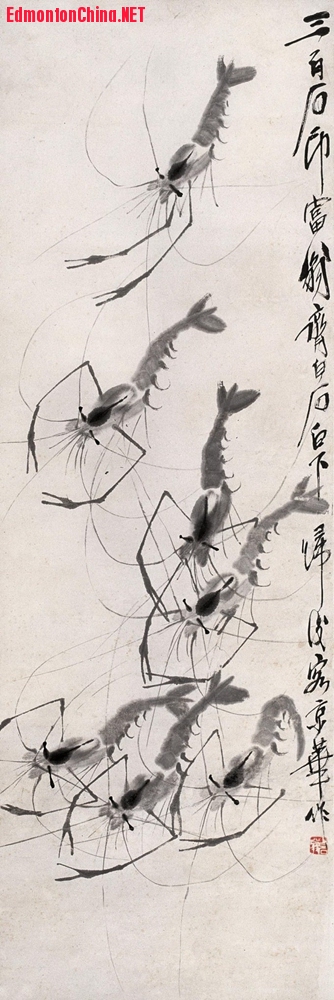 EdmontonChina.NET
三百石印富翁齊白石白下歸後客京華作